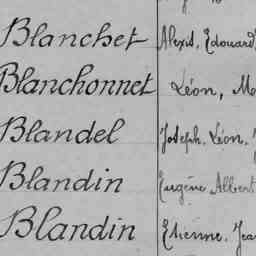 Blanchet Alexis, Edouard,
Blanchonnet Léon, M
Blandel Joseph, Léon,
Blandin Eugène Albert
Blandin Etienne, Jea